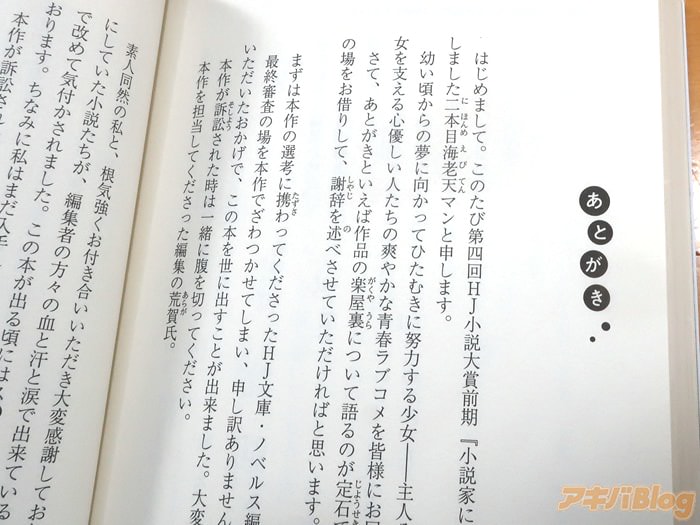 あとがき
はじめまして。このたび第四回HJ小説大賞前期『小説家に
しました二本目海老天マンと申します。
幼い頃からの夢に向かってひたむきに努力する少女――主人
女を支える心優しい人たちの爽やかな青春ラブコメを皆様にお
さて、あとがきといえば作品の楽屋裏について語るのが定石で
の場をお借りして、謝辞を述べさせていただければと思います。
まずは本作の選考に携わってくださったHJ文庫・ノベルス編
最終審査の場を本作でざわつかせてしまい、申し訳ありません
いただいたおかげで、この本を世に出すことが出来ました。大変
本作が訴訟された時は一緒に腹を切ってください。
本作を担当してくださった編集の荒賀氏。
素人同然の私と、根気強くお付き合いいただき大変感謝してお
にしていた小説たちが、編集者の方々の血と汗と涙で出来ている
で改めて気付かされました。この本が出る頃には
おります。ちなみに私はまだ
本作が訴訟され
アキバBlog